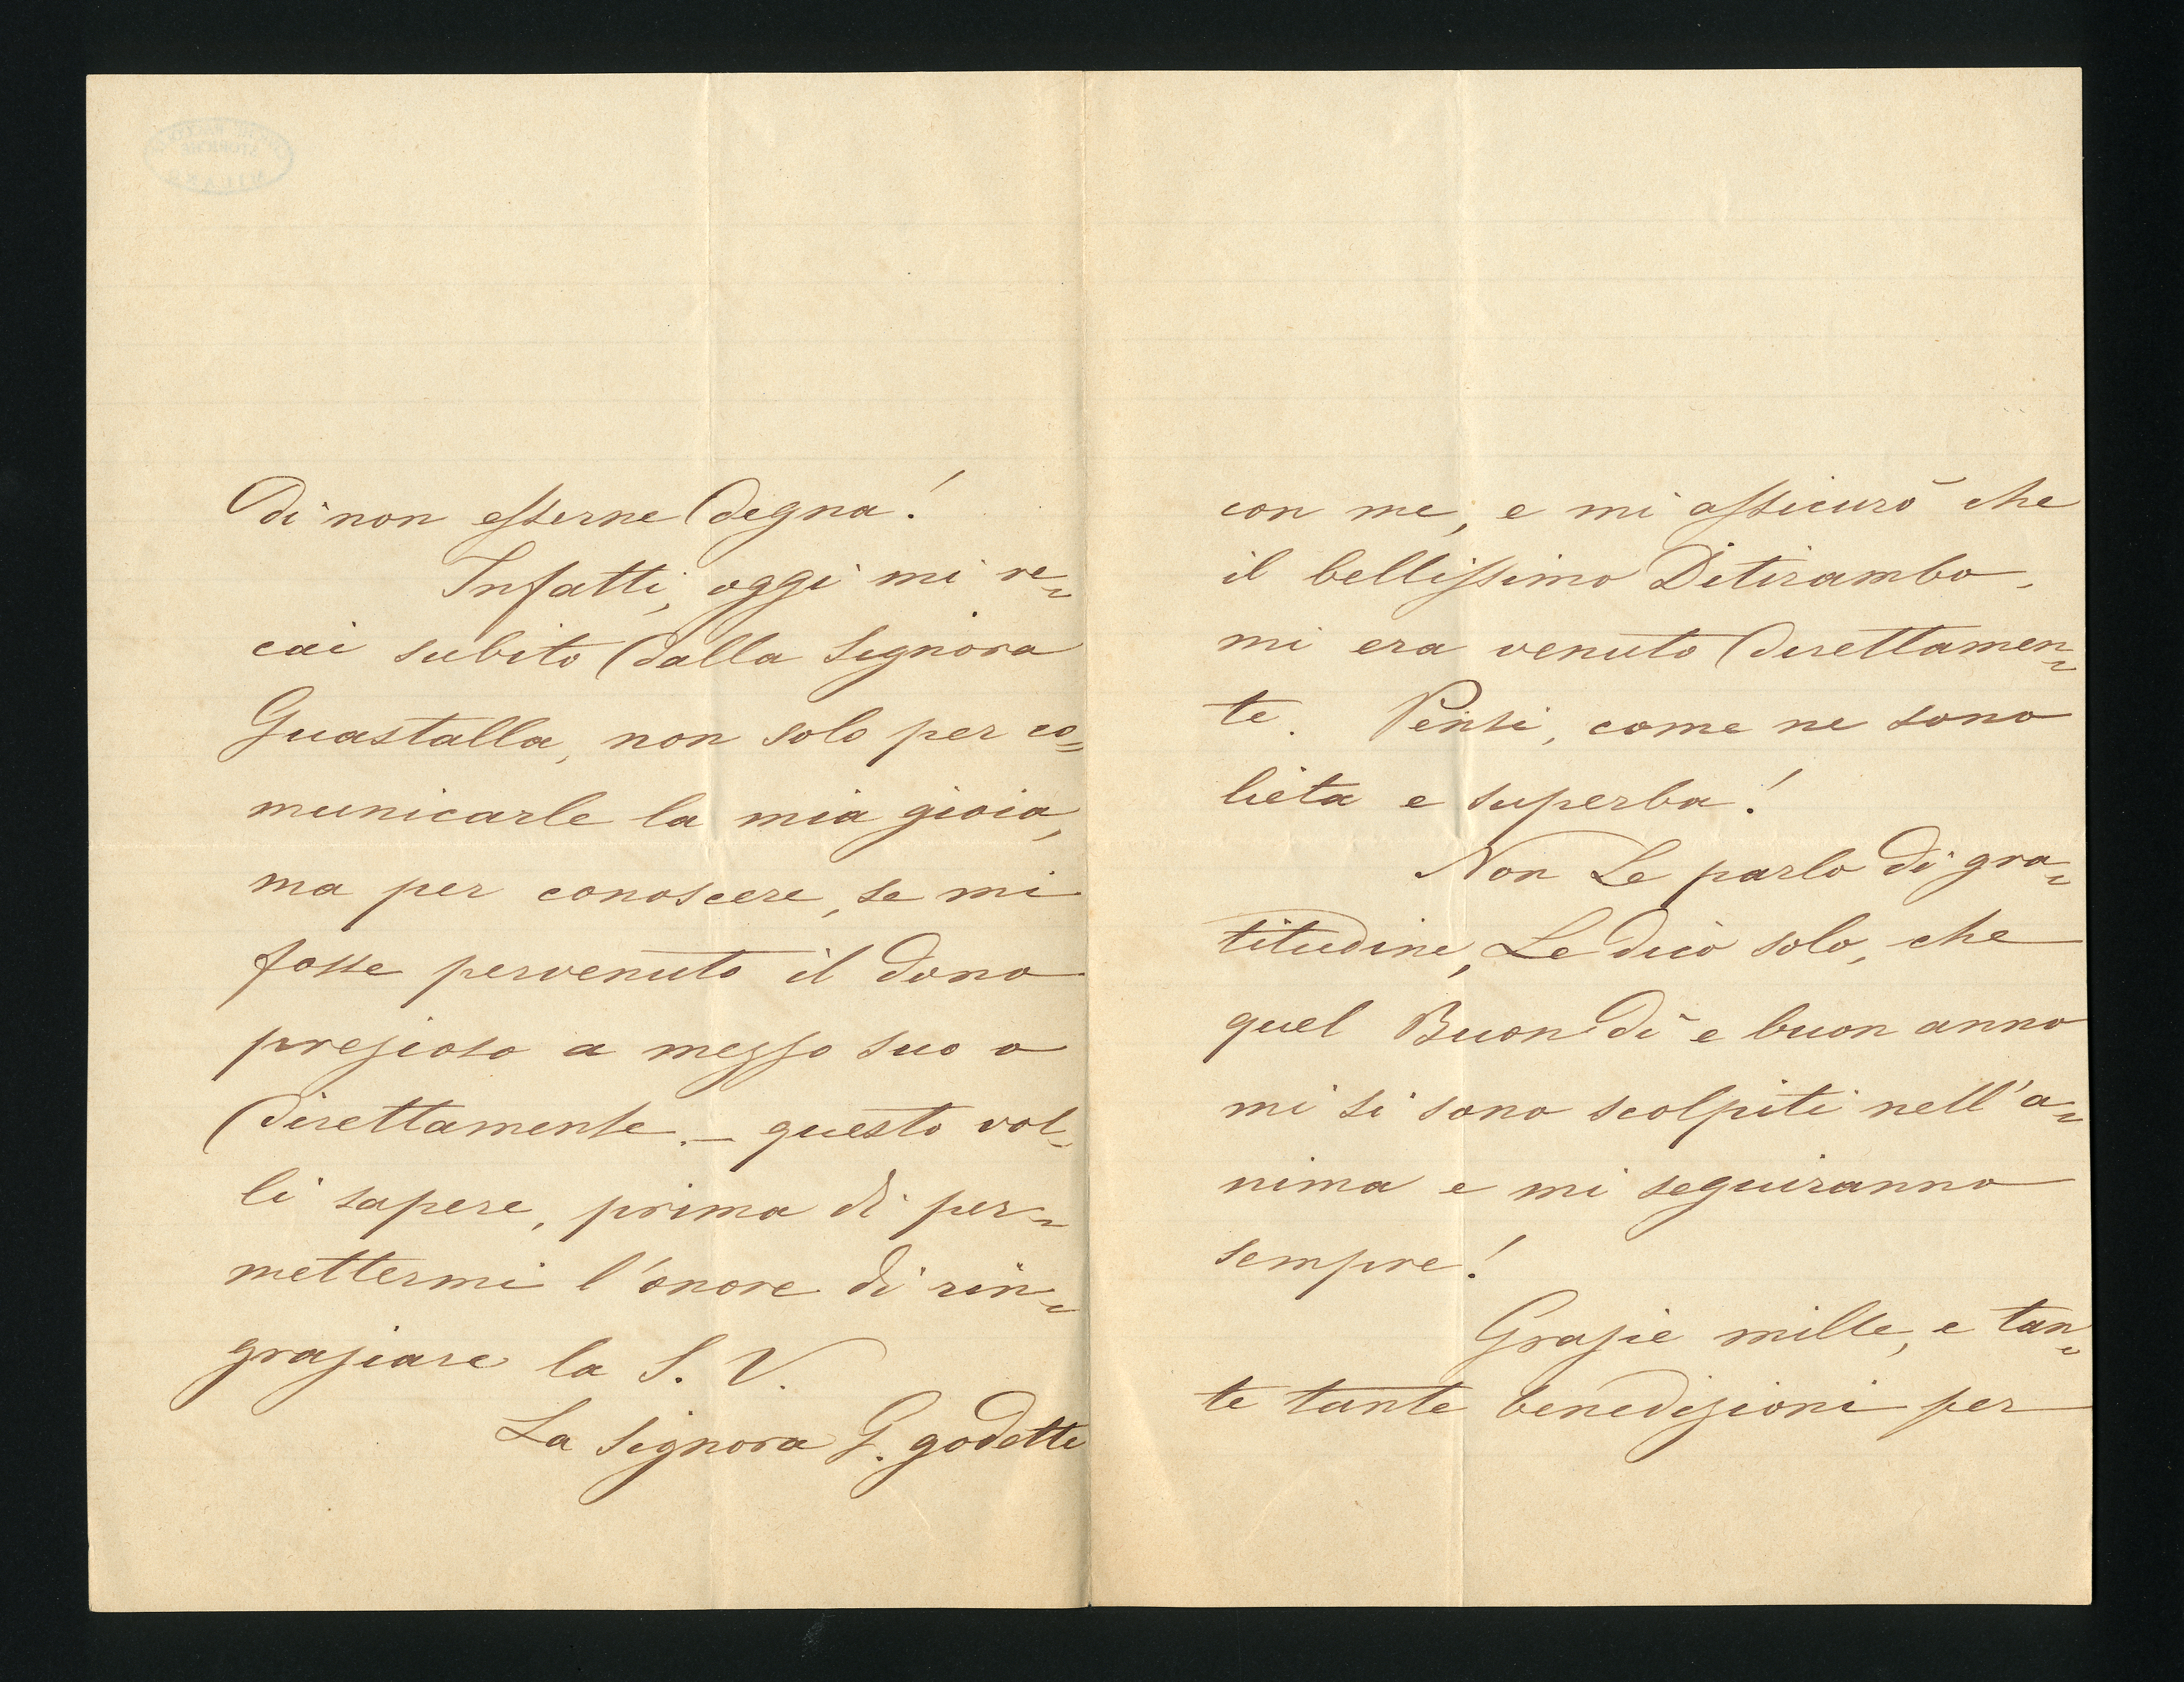 di non esserne degna!
Infatti, oggi mi re-
cai subito dalla Signora
Guastalla, non solo per co-
municarle la mia gioia,
ma per conoscere, se mi
fosse pervenuto il dono
prezioso a mezzo suo o
direttamente. - questo vol-
li sapere, prima di per-
mettermi l'onore di rin-
graziare la S. V.
La Signora G. godette
con me, e mi assicurò che
il bellissimo Ditirambo,
mi era venuto direttamen-
te. Pensi, come ne sono
lieta e superba!
Non Le parlo di gra-
titudine, Le dico solo, che
quel Buon dì e buon anno
mi si sono scolpiti nell'a-
nima e mi seguiranno
sempre!
Grazie mille, e tan-
te tante benedizioni per